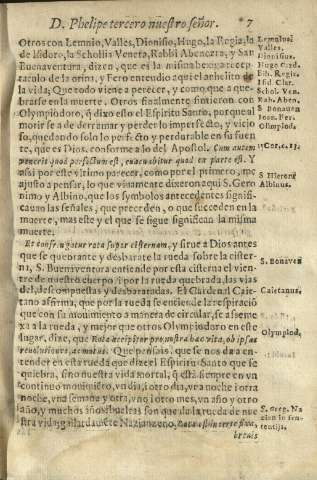 D. Phelipe tercero nuestro señor. 7
Otros con Lemnio, Valles, Dionisio, Hugo, la Regia, la
de Isidoro, la Scholia Veneta, Rabbi Abenezra, y San
Buenaventura, dizen, que es la misma
taculo de la orina, y Fero entendio aqui el anhelito de
la vida; Que todo viene a perecer, y como que a quebrarse
en la muerte. Otros finalmente sintieron con
Olympiodoro, q̃ dixo esto el Espiritu Santo, porque al
morir se a de derramar y perder lo imperfecto, y vicioso,
quedando solo lo perfecto y perdurable en su fuente,
que es Dios, conforme a lo del Apostol. Cum autem
venerit quod perfectum est, euacuabitur quod ex parte est. Y
assi por este vltimo parecer, como por el primero, me
ajusto a pensar, lo que viuamente dixeron aqui S. Geronimo
y Albino, que los symbolos antecedentes significauan
las señales, que preceden, o que succeden en la
muerte, mas este y el que se sigue significan la misma
muerte.
Et confringatur rota super cisternam, y sirue a Dios antes
que se quebrante y desbarate la rueda sobre la cisterna,
S. Buenaventura entiende por esta cisterna el vientre
de nuestro cuerpo, i por la rueda quebrada, las vias
del, descompuestas y desbaratadas. El Cardenal Caietano
afirma, que por la rueda se entiende la respiració
que con su mouimiento a manera de circular, se asemexa
a la rueda, y mejor que otros Olympiodoro en este
lugar, dize, que Rota accipitur pro nostra hac vita, ob ipsas
reuolutiones, ac motus. Que pensais, que se nos da a entender
en esta rueda que dize el Espiritu Santo que se
quiebra, sino nuestra vida mortal, q̃ està siempre en vn
continuo mouimiẽto, vn dia, i otro dia, vna noche i otra
noche, vna semana y otra, vn mes i otro, vn año y otro
año, y muchos años bueltas son que da la rueda de nuestra
vida; gallardamẽte Nazianzeno.
breuis
Lemnius,
Valles,
Dionisius.
Hugo Card.
Bib. Regia.
Isid. Clar.
Schol. Ven.
Rab. Aben.
S Bonauen
Ioan. Fer.
Olimpiod.
1. Cor. c. 13.
S Hieron.
Albinus.
S. Bonauen
Caietanus.
Olympiod.
S. Greg. Na